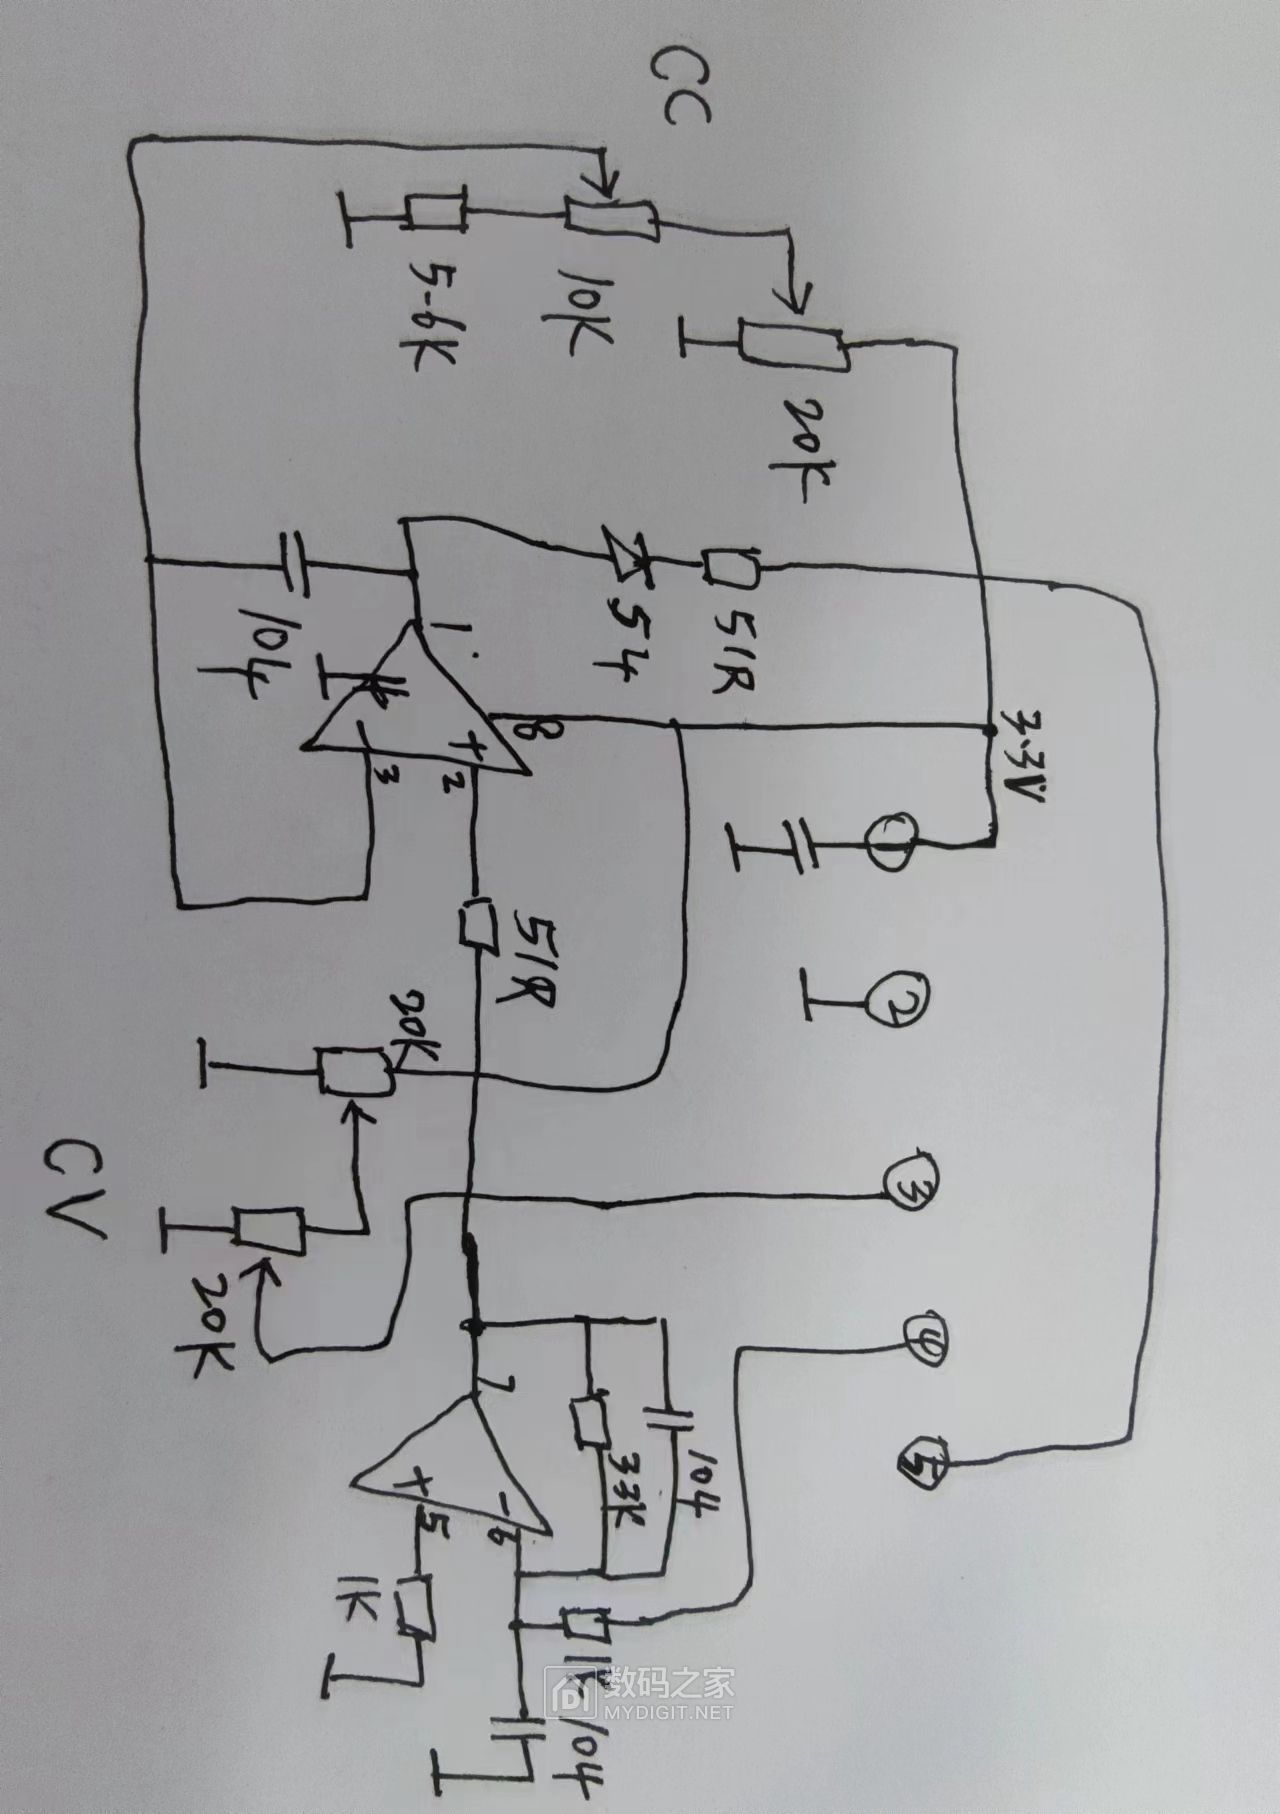 CC
5.6K
10K
20K
104
54
51R
1
8
+
-
3
2
3.3V
1
2
3
4
5
51R
20K
CV
20K
7
33K
104
+
-
5
6
1K
1K
104
数码之家
MYDIGIT.NET